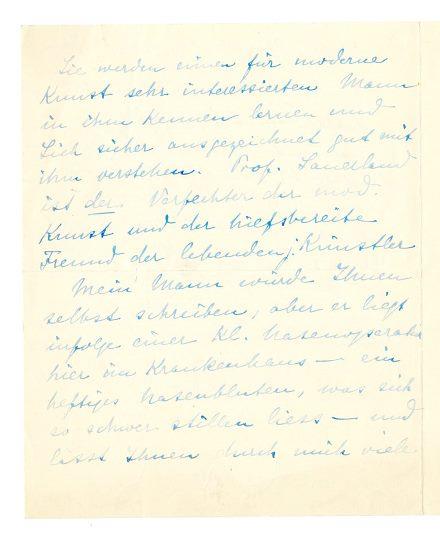 Sie werden einen für moderne
Kunst sehr interessierten Mann
in ihm kennen lernen und
Sich sicher ausgezeichnet gut mit
ihm verstehen. Prof. Sauerland
ist der Verfechter der mod.
Kunst und der hilfsbereite
Freund der lebenden Künstler
Mein Mann würde Ihnen
selbst schreiben, aber er liegt
infolge einer kl. Nasenoperation
hier im Krankenhaus — ein
heftiges Nasenbluten, was sich
so schwer stillen liess — und
lässt Ihnen durch mich viele